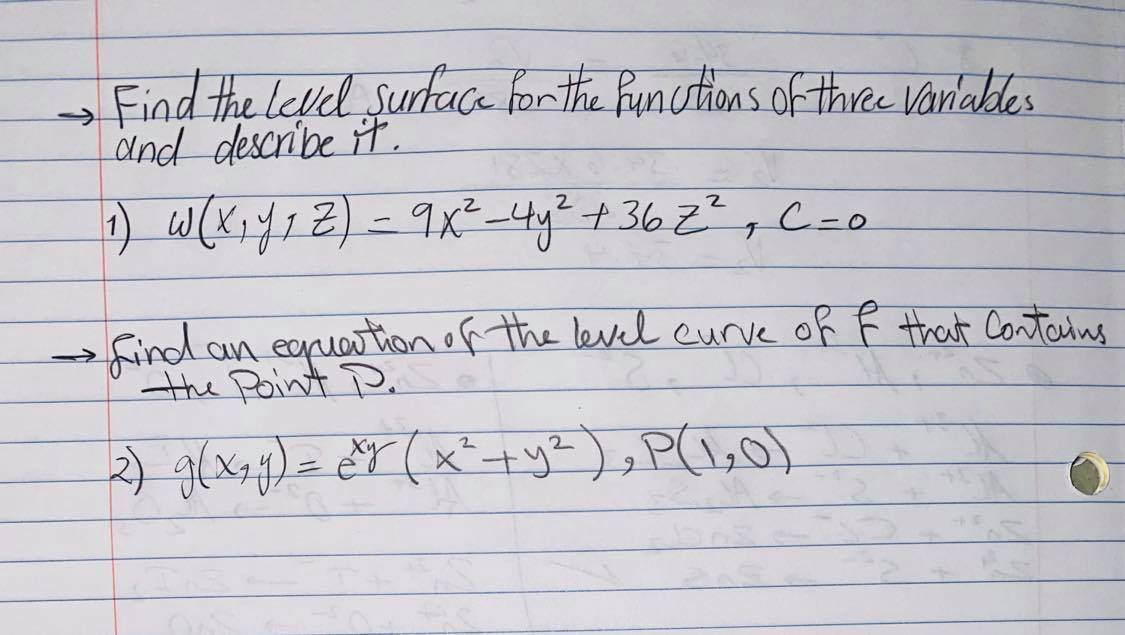 → Find the level surface for the functions of three variables
and describe it.
1) w(x,y,z) = 9x² - 4y² + 36z², C=0
→ Find an equation of the level curve of f that contains
the Point P.
2) g(x,y) = e^xy (x² + y²), P(1,0)